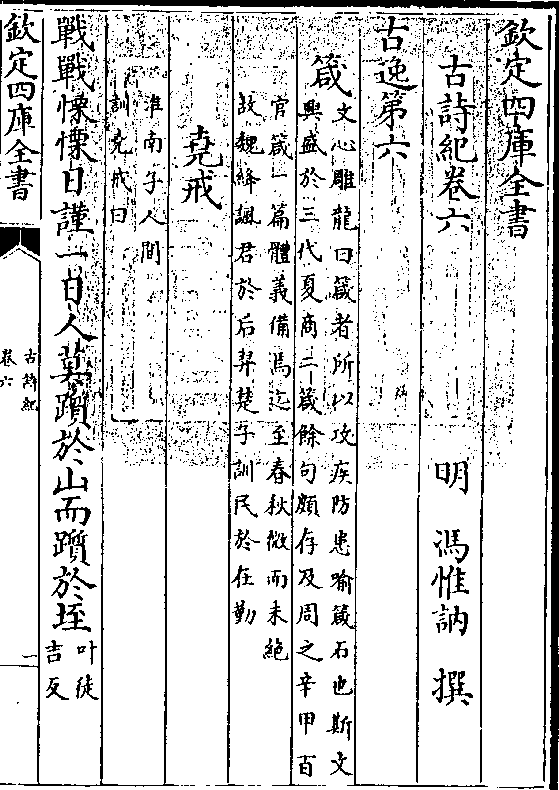 欽定四庫全書
古詩紀卷六
明 馮惟訥 撰
古逸第六
箴
文心雕龍曰箴者所以攻疾防患喻箴石也斯文
興盛於三代夏商二箴餘句頗存及周之辛甲百
官箴一篇體義備焉迄至春秋微而未絶
故魏絳諷君於后羿楚子訓民於在勤
堯戒
淮南子人間
訓堯戒曰
戰戰慄慄日謹一日人莫躓於山而躓於垤
叶徒
吉反
欽定四庫全書
古詩紀
卷六
一